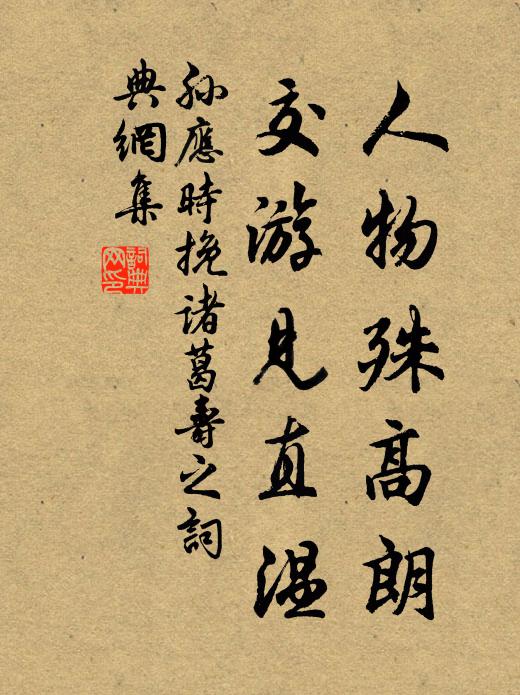 人物殊高朗
交游見直温
孙應時挽诸葛壽之詞
典網集
詞典网印